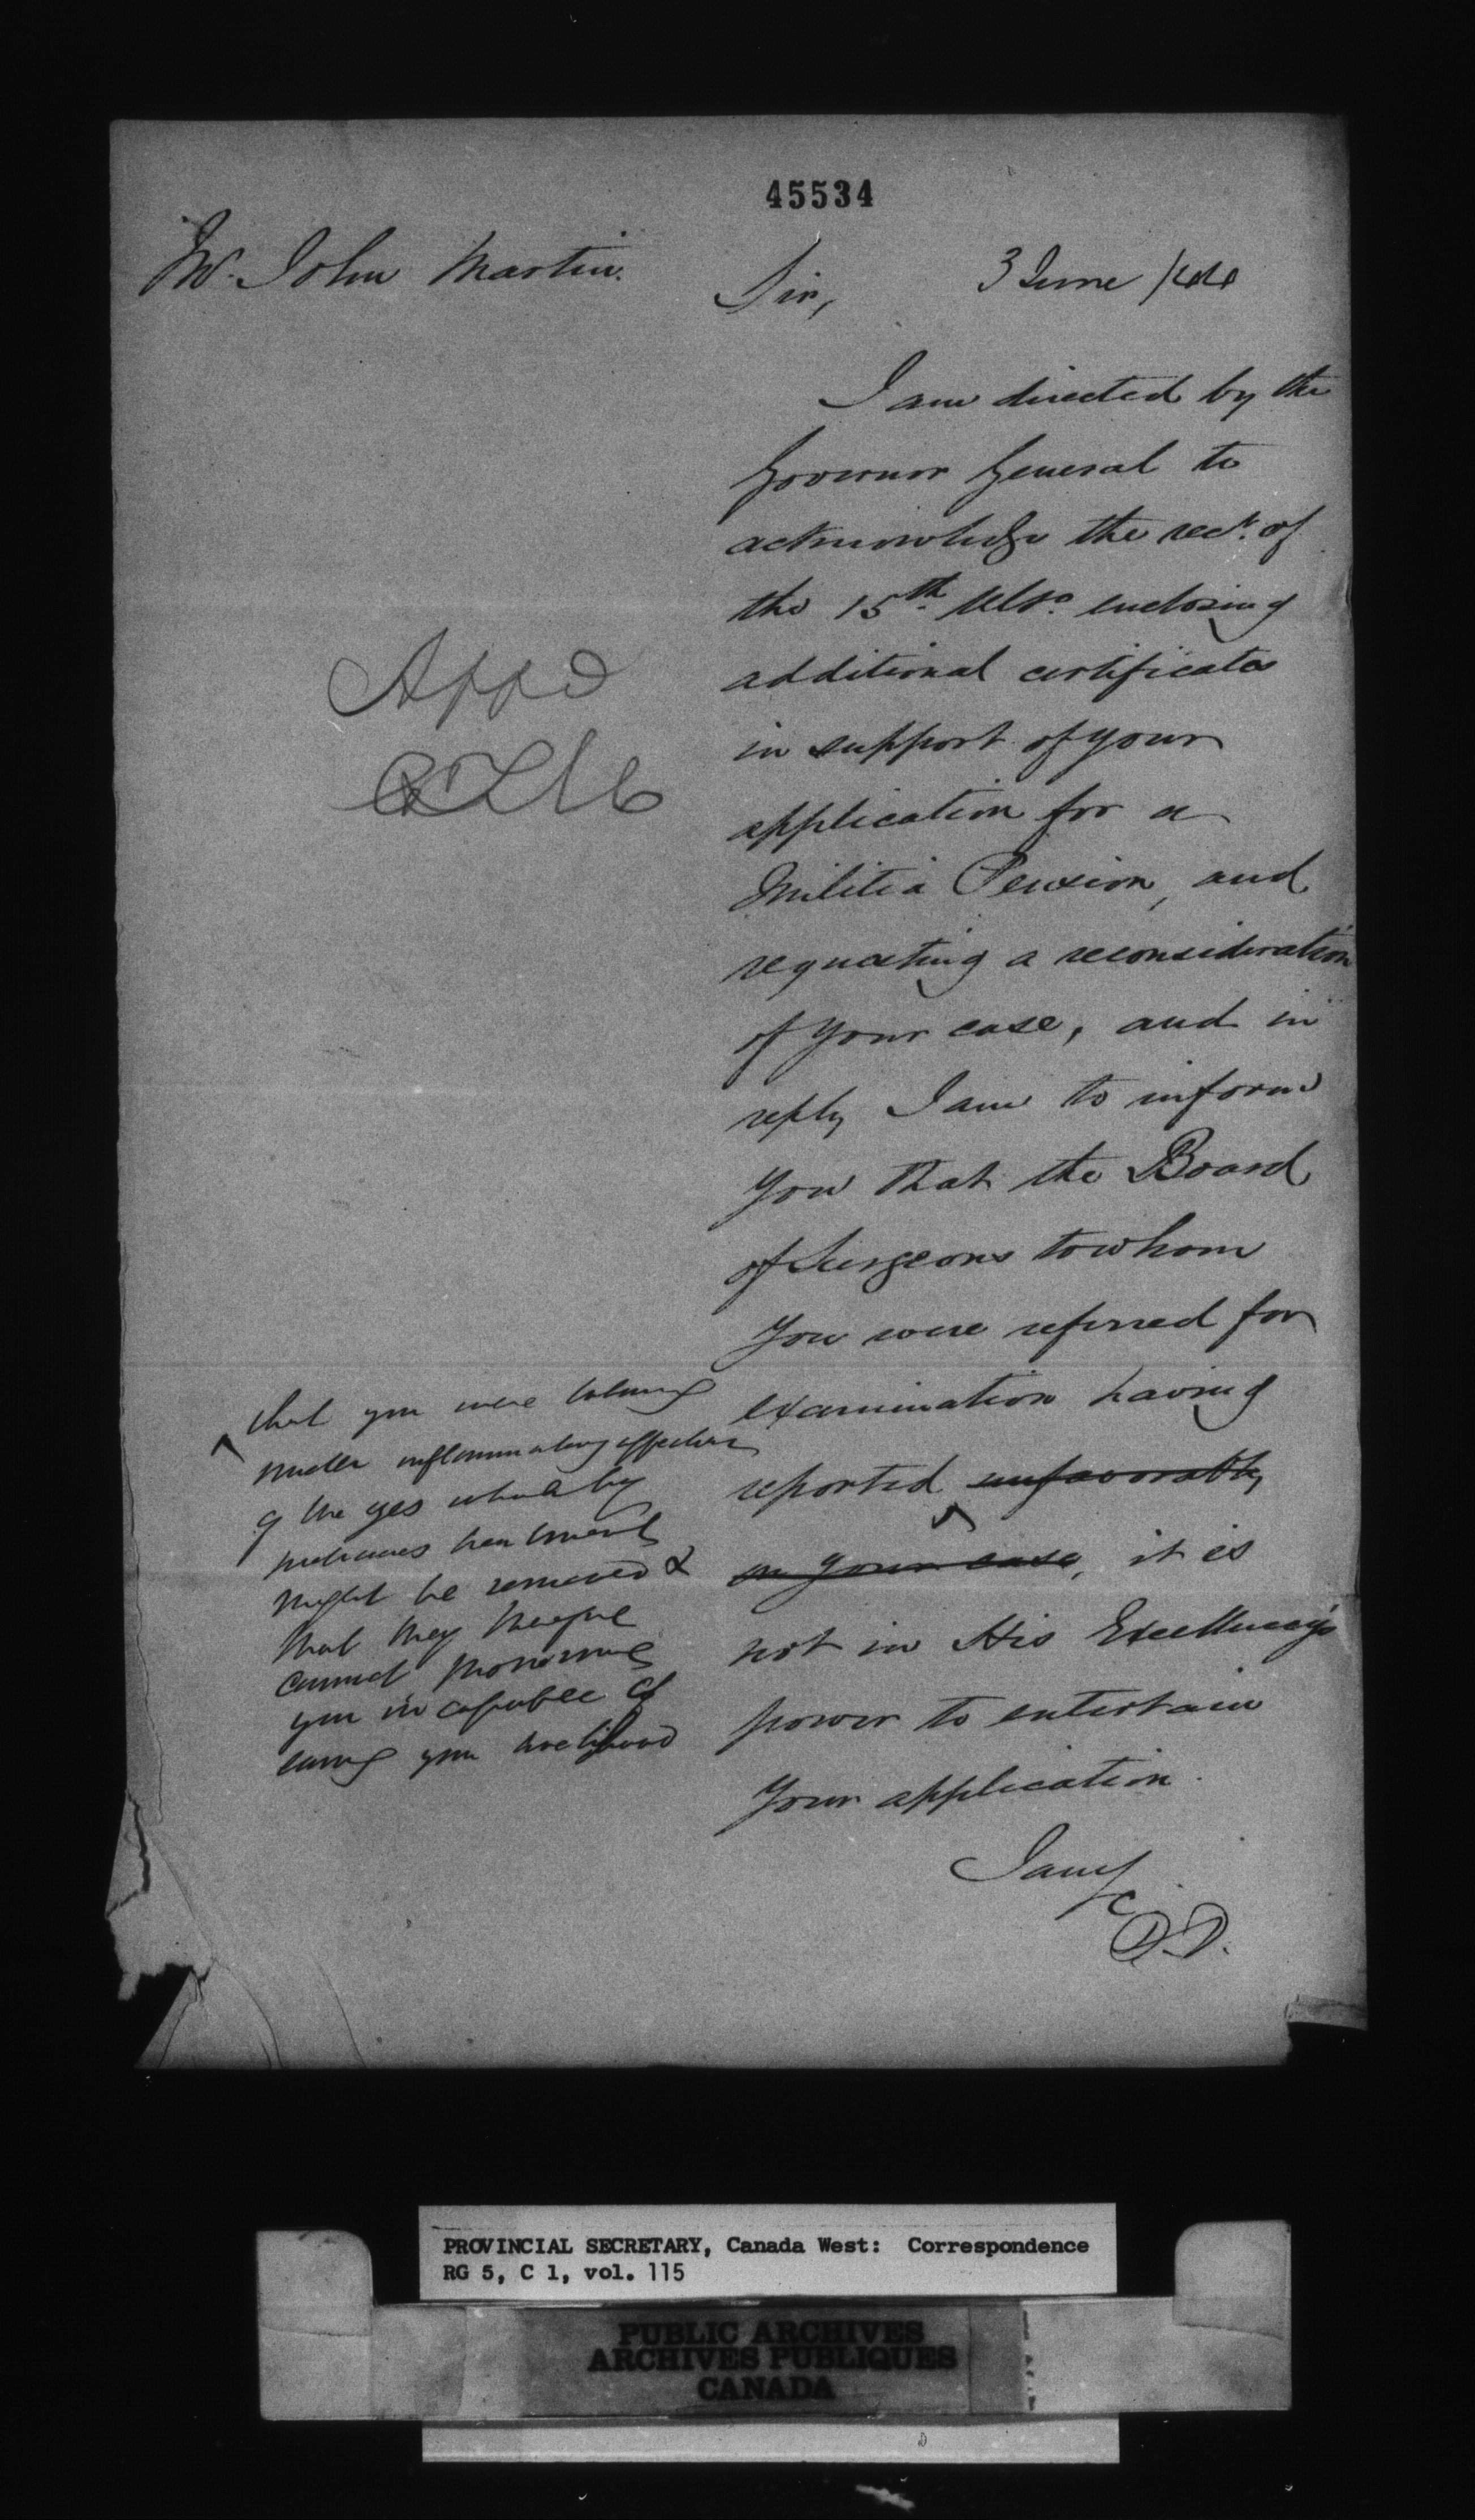 45534
Mr. John Martin.
Sir, 3 June /44
I am directed by the
Governor General to
acknowledge the rect. of
the 15th. Ulto. enclosing
additional certificates
in support of your
application for a
Militia Pension, and
requesting a reconsideration
of your case, and in
reply I am to inform
you that the Board
of Surgeons to whom
you were referred for
examination having
reported unfavorably
on your case, it is
not in His Excellency's
power to entertain
your application.
I am &c
D.D.
Appd
CTM
that you were labouring
under inflammatory affection
of the yes which by
treatment
might be removed &
that they therefore
cannot pronounce
you incapable of
earng your livelihood
PROVINCIAL SECRETARY, Canada West: Correspondence
RG 5, C 1, vol. 115
PUBLIC ARCHIVES
ARCHIVES PUBLIQUES
CANADA